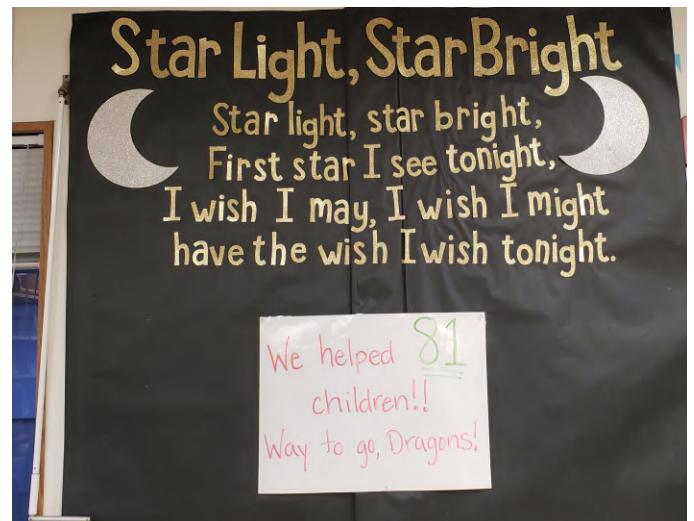 Star Light, Star Bright
Star light, star bright,
First star I see tonight,
I wish I may, I wish I might
have the wish I wish tonight.
We helped 81
children!!
Way to go, Dragons!